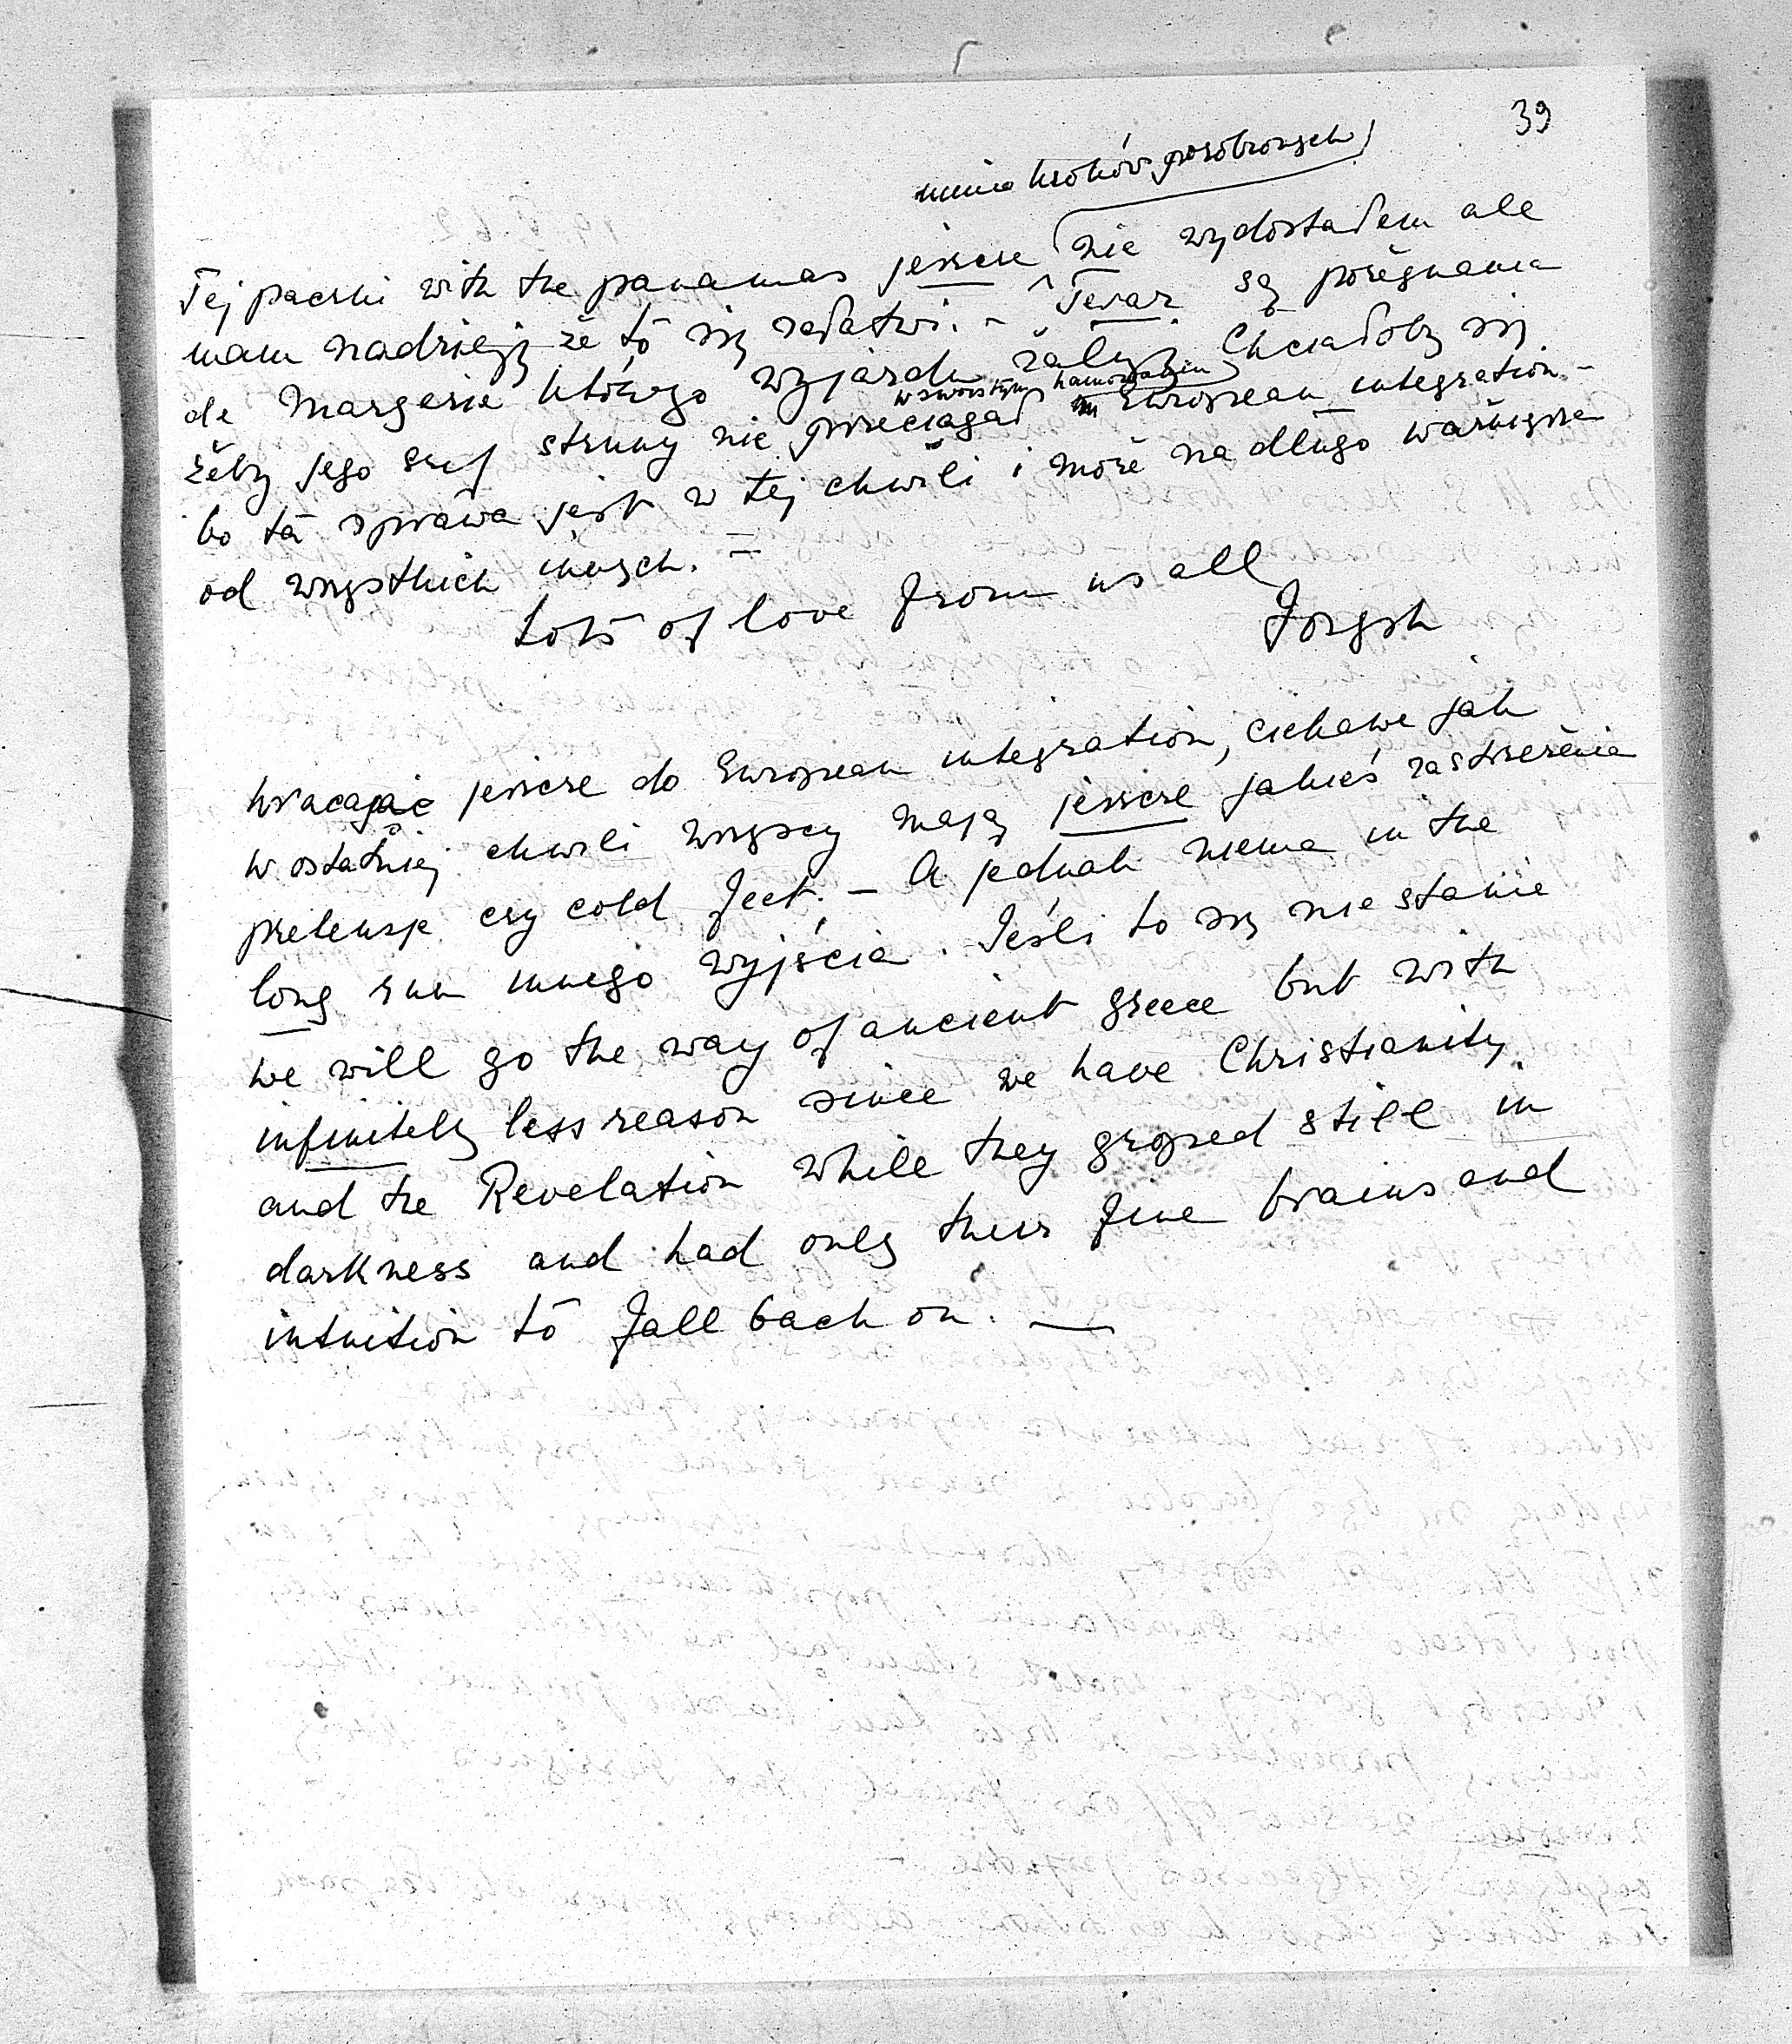 39
mimo kroków porobionych
Tej paczki with the panamas jeszcze nie wydostałem ale
mam nadzieję że to się załatwi. – Teraz są pożegnania
de Margerie którego wyjazdu żałuję. Chciałoby się
żeby jego szef struny nie przeciągał w swoistym hamowaniu European integration –
bo ta sprawa jest w tej chwili i może na długo ważniejsza
od wszystkich innych. –
Lots of love from us all
Józych
Wracając jeszcze do European integration, ciekawe jak
w ostatniej chwili wszyscy mają jeszcze jakieś zastrzeżenia
pretensje czy cold feet. – A jednak niema in the
long run innego wyjścia. Jeśli to się nie stanie
we will go the way of ancient greece but with
infinitely less reason since we have Christianity
and the Revelation while they groped still in
darkness and had only their fine brains and
intuition to fall back on. —